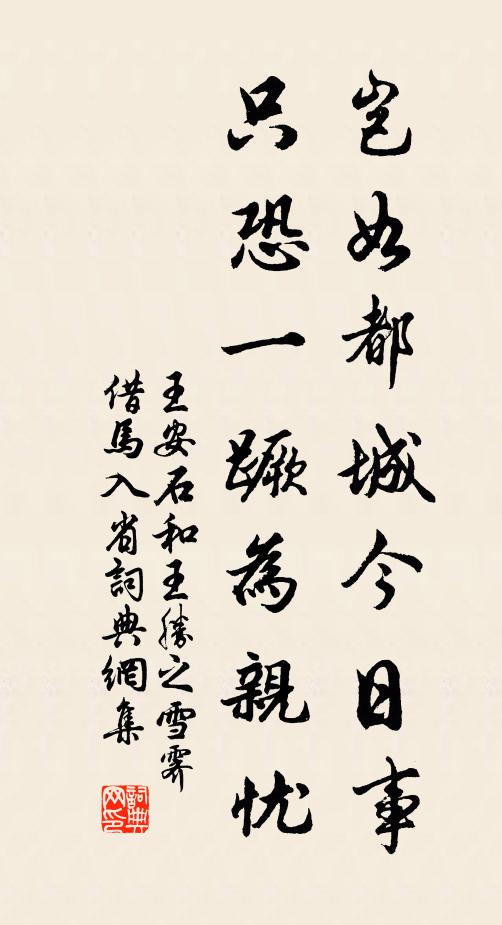 岂如都城今日事
只恐一蹶為親忧
王安石和王勝之雪霽
借馬入省詞典網集
詞典网印